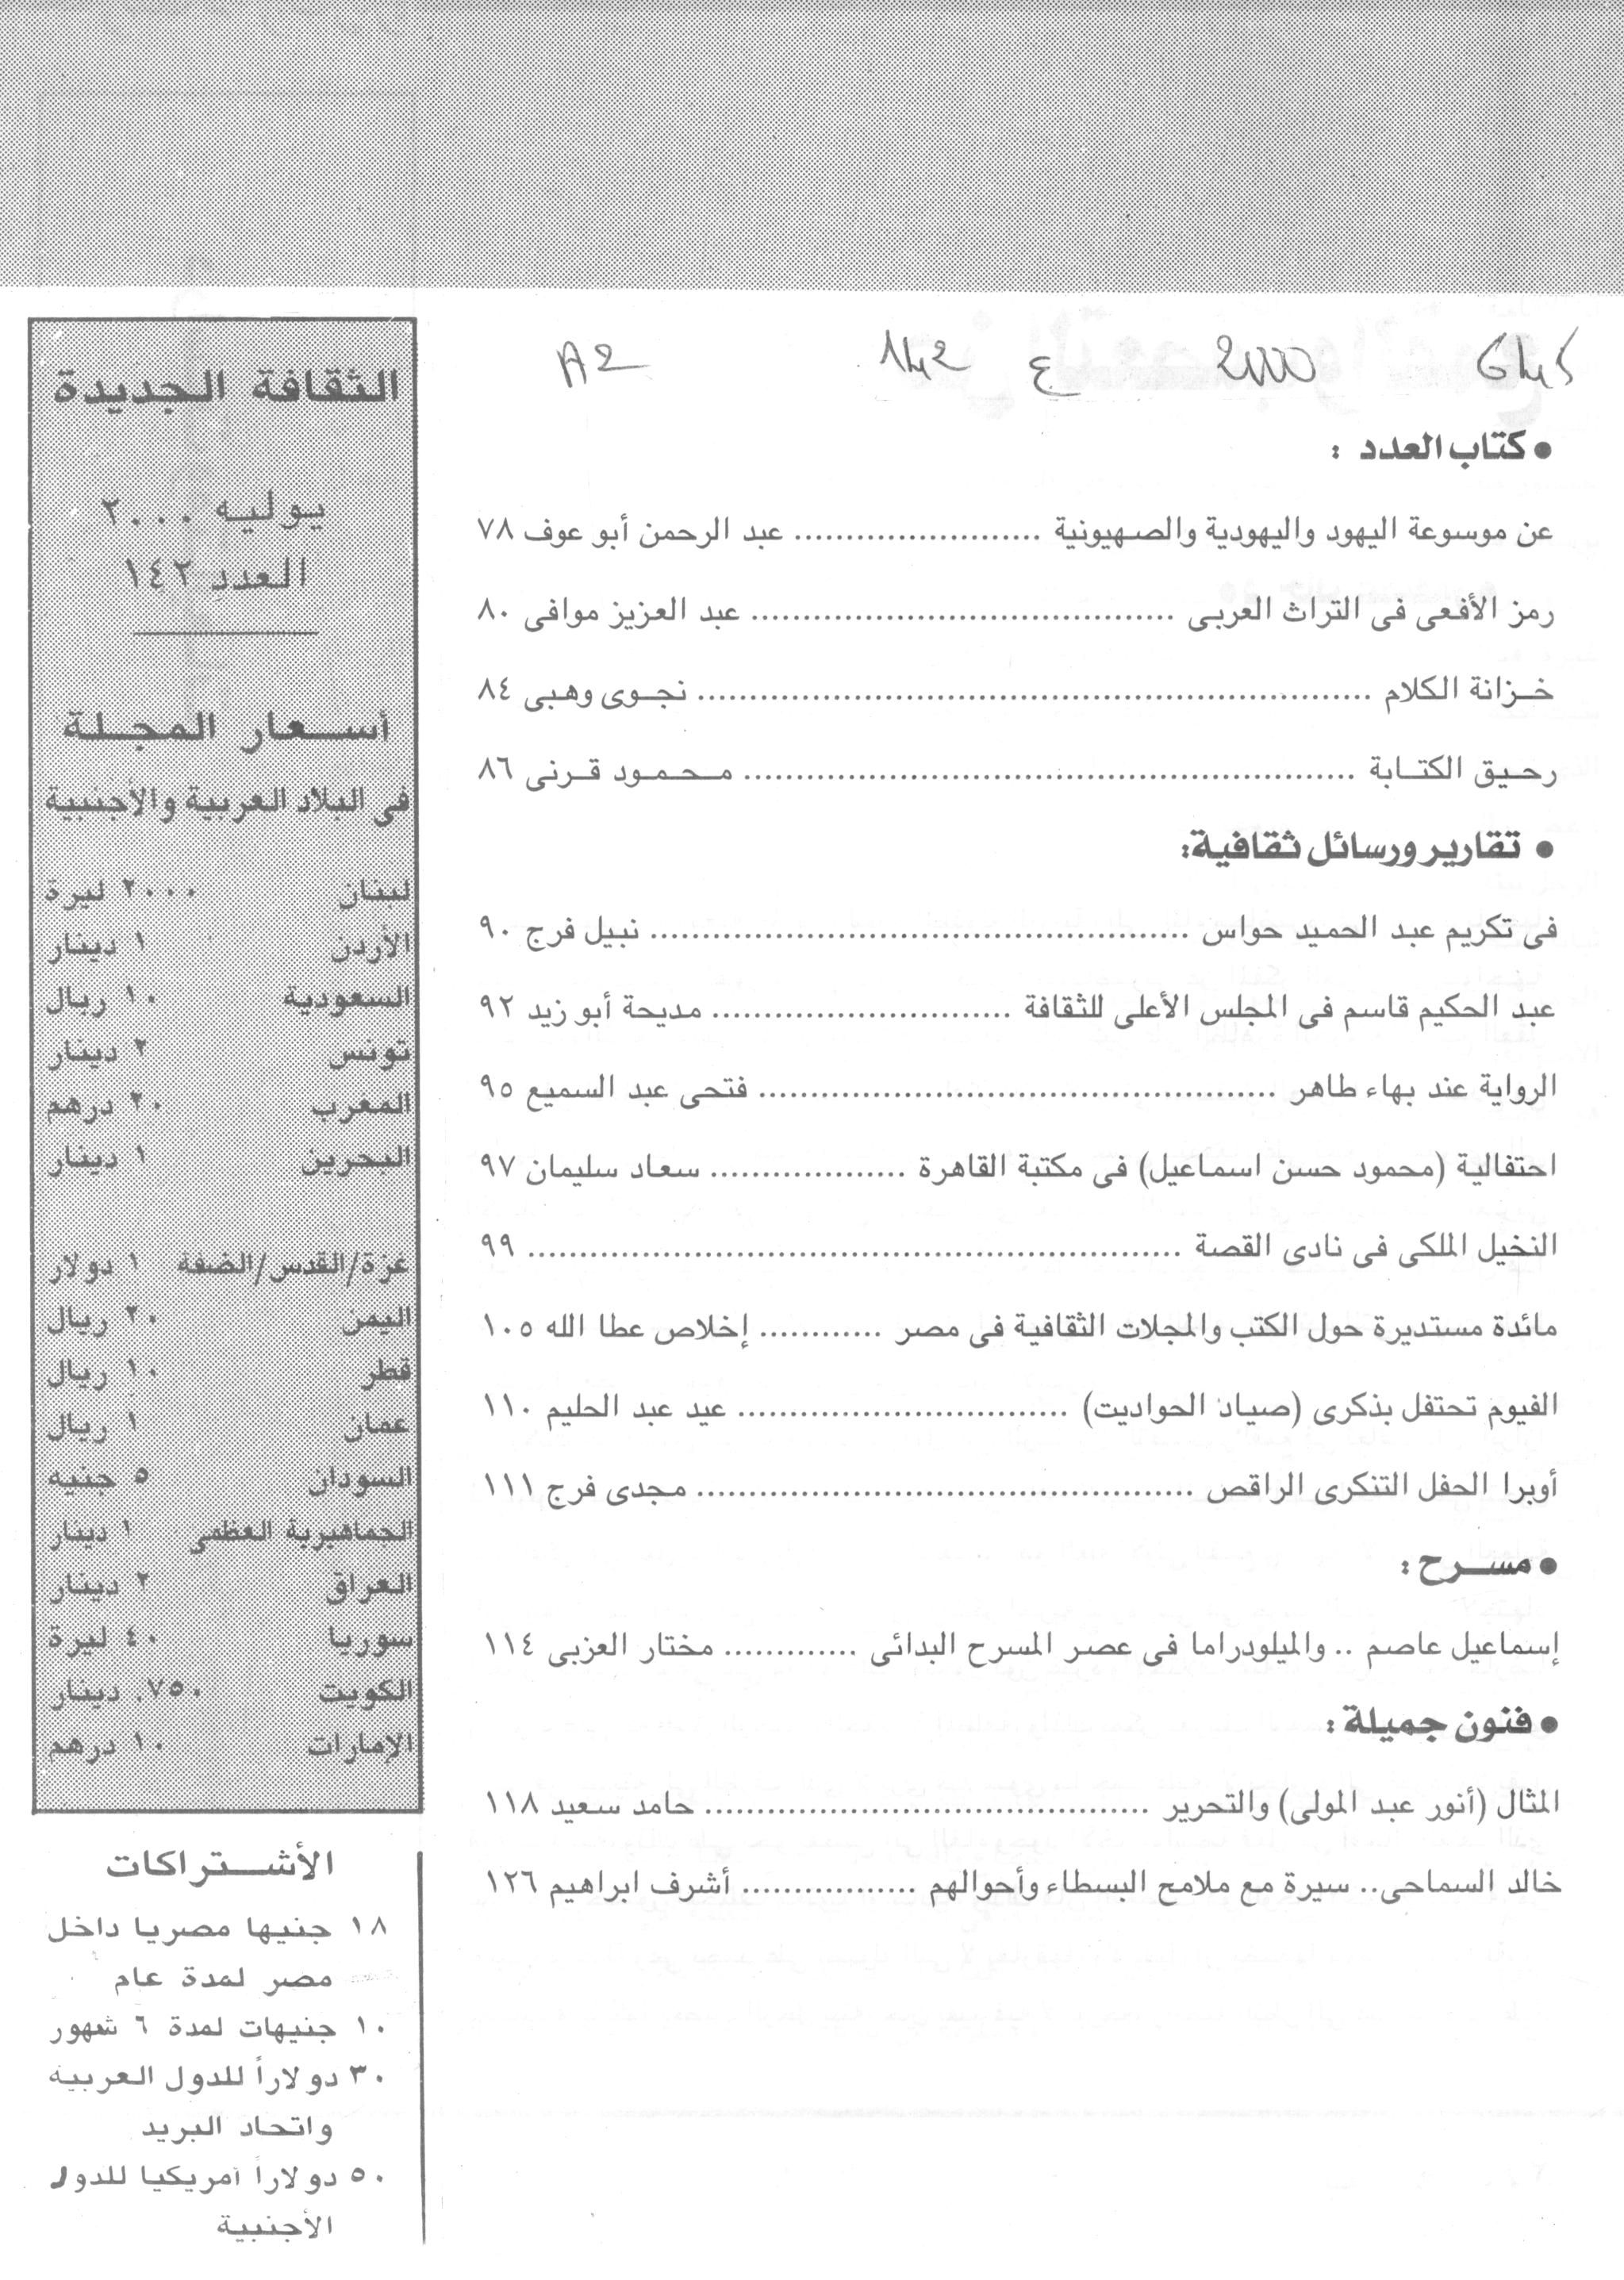 6465 2000 ع 142 A2
● كتاب العدد :
عن موسوعة اليهود واليهودية والصهيونية ........................ عبد الرحمن أبو عوف ٧٨
رمز الأفعى فى التراث العربى ......................................... عبد العزيز موافى ٨٠
خـزانة الكلام ................................................................. نجـوى وهـبى ٨٤
رحـيق الكتـابة ............................................................ مـحـمـود قـرنى ٨٦
● تقارير ورسائل ثقافية:
فى تكريم عبد الحميد حواس .................................................... نبيل فرج ٩٠
عبد الحكيم قاسم فى المجلس الأعلى للثقافة ............................. مديحة أبو زيد ٩٢
الرواية عند بهاء طاهر .................................................. فتحى عبد السميع ٩٥
احتفالية (محمود حسن اسماعيل) فى مكتبة القاهرة ................... سعاد سليمان ٩٧
النخيل الملكى فى نادى القصة ............................................................... ٩٩
مائدة مستديرة حول الكتب والمجلات الثقافية فى مصر ............ إخلاص عطا الله ١٠٥
الفيوم تحتفل بذكرى (صياد الحواديت) ................................ عيد عبد الحليم ١١٠
أوبرا الحفل التنكرى الراقص ................................................ مجدى فرج ١١١
● مسـرح :
إسماعيل عاصم .. والميلودراما فى عصر المسرح البدائى ............. مختار العزبى ١١٤
● فنون جميلة :
المثال (أنور عبد المولى) والتحرير ........................................... حامد سعيد ١١٨
خالد السماحى.. سيرة مع ملامح البسطاء وأحوالهم ................. أشرف ابراهيم ١٢٦
الثقافة الجديدة
يوليه ٢٠٠٠
العدد ١٤٢
أسـعار المجـلة
فى البلاد العربية والأجنبية
لبنان ٢٠٠٠ ليرة
الأردن ١ دينار
السعودية ١٠ ريال
تونس ٢ دينار
المغرب ٢٠ درهم
البحرين ١ دينار
غزة/القدس/الضفة ١ دولار
اليمن ٢٠ ريال
قطر ١٠ ريال
عمان ١ ريال
السودان ٥ جنيه
الجماهيرية العظمى ١ دينار
العراق ٢ دينار
سوريا ٤٠ ليرة
الكويت ٧٥٠, دينار
الإمارات ١٠ درهم
الأشـتراكات
١٨ جنيها مصريا داخل
مصر لمدة عام
١٠ جنيهات لمدة ٦ شهور
٣٠ دولاراً للدول العربيه
واتحاد البريد
٥٠ دولاراً أمريكيا للدول
الأجنبية